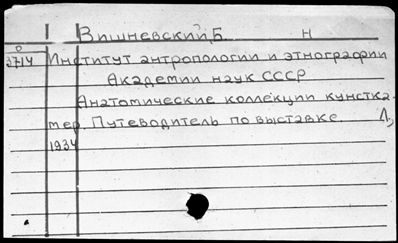 Вишневский Б. Н
о
3714 Институт антропологии и этнографии
Академии наук СССР
Анатомические коллекции кунстка-
мер. Путеводитель по выставке. Л,
1934